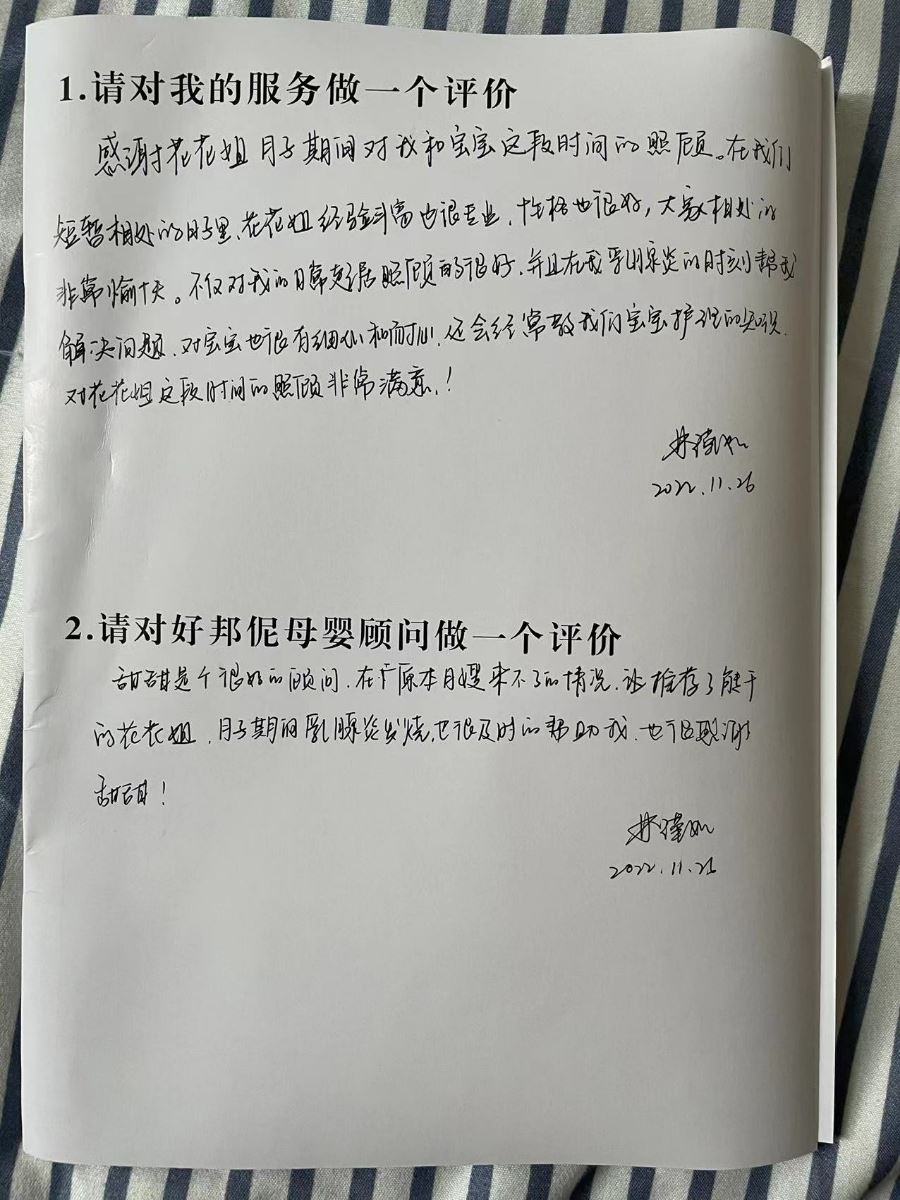 1.请对我的服务做一个评价
感谢花花姐月子期间对我和宝宝这段时间的照顾。在我们
短暂相处的日子里、花花姐经验丰富也很专业，性格也很好，大家相处的
非常愉快。不仅对我的日常起居照顾的很好，并且在我乳腺炎的时刻帮我
解决问题、对宝宝也很有细心和耐心，还会经常教我们宝宝护理的知识.
对花花姐这段时间的照顾非常满意！
2022.11.26
2.请对好邦伲母婴顾问做一个评价
甜甜是个很好的顾问，在原本月嫂来不了的情况，推荐了能干
的花花姐，月子期间乳腺炎发烧，也很及时的帮助我，也很感谢
甜甜！
2022.11.26